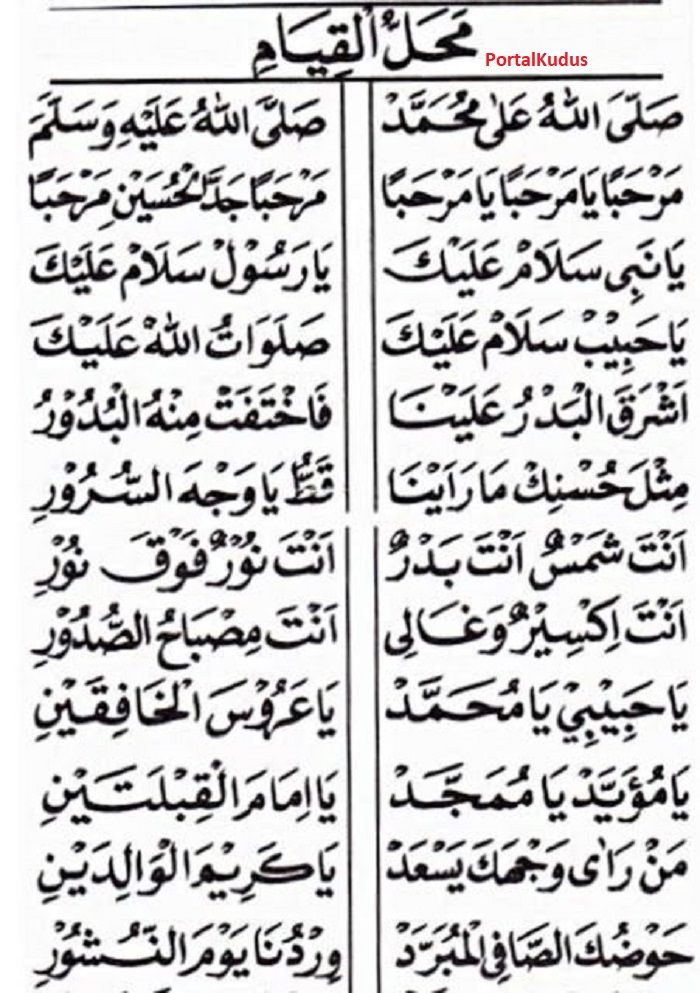 مَحَلُّ الْقِيَامِ
PortalKudus
صَلَّى اللهُ عَلٰى مُحَمَّدْ صَلَّى اللهُ عَلَيْهِ وَسَلَّمَ
مَرْحَبًا يَا مَرْحَبًا يَا مَرْحَبًا مَرْحَبًا جَدَّ الْحُسَيْنِ مَرْحَبًا
يَا نَبِى سَلَامْ عَلَيْكَ يَا رَسُوْلْ سَلَامْ عَلَيْكَ
يَا حَبِيْبْ سَلَامْ عَلَيْكَ صَلَوَاتُ اللهْ عَلَيْكَ
اَشْرَقَ الْبَدْرُ عَلَيْنَا فَاخْتَفَتْ مِنْهُ الْبُدُوْرُ
مِثْلَ حُسْنِكْ مَا رَاَيْنَا قَطُّ يَا وَجْهَ السُّرُوْرِ
اَنْتَ شَمْسٌ اَنْتَ بَدْرٌ اَنْتَ نُوْرٌ فَوْقَ نُوْرِ
اَنْتَ اِكْسِيْرٌ وَغَالِى اَنْتَ مِصْبَاحُ الصُّدُوْرِ
يَا حَبِيْبِيْ يَا مُحَمَّدْ يَا عَرُوْسَ الْخَافِقَيْنِ
يَا مُؤَيَّدْ يَا مُمَجَّدْ يَا اِمَامَ الْقِبْلَتَيْنِ
مَنْ رَاٰى وَجْهَكَ يَسْعَدْ يَا كَرِيْمَ الْوَالِدَيْنِ
حَوْضُكَ الصَّافِى الْمُبَرَّدْ وِرْدُنَا يَوْمَ النُّشُوْرِ